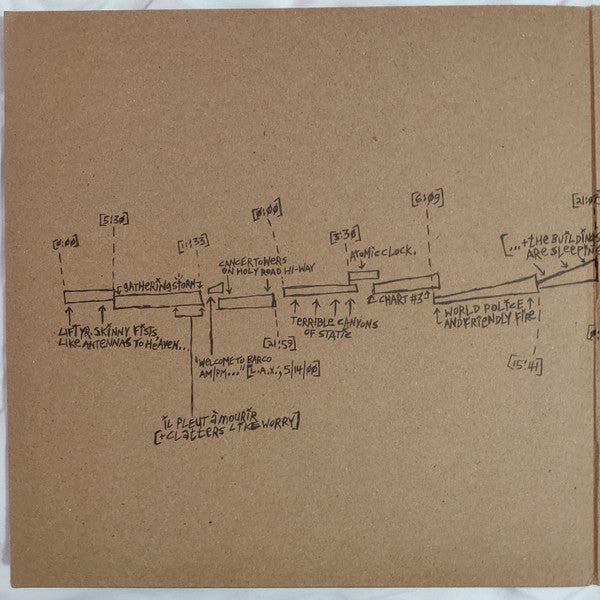 [0:00]
[5:30]
[11:33]
[0:00]
[3:30]
[6:09]
LIFT YR. SKINNY FISTS
LIKE ANTENNAS TO HEAVEN...
GATHERING STORM
IL PLEUT À MOURIR
[+CLATTERS LIKE WORRY]
"WELCOME TO BARCO
AM/PM..." [L.A.X.; 5/14/00]
CANCER TOWERS
ON HOLY ROAD HI-WAY
[21:59]
TERRIBLE CANYONS
OF STATIC
ATOMIC CLOCK.
CHART #3
WORLD POLICE
AND FRIENDLY FIRE
[15:41]
[...+THE BUILDINGS
ARE SLEEPING